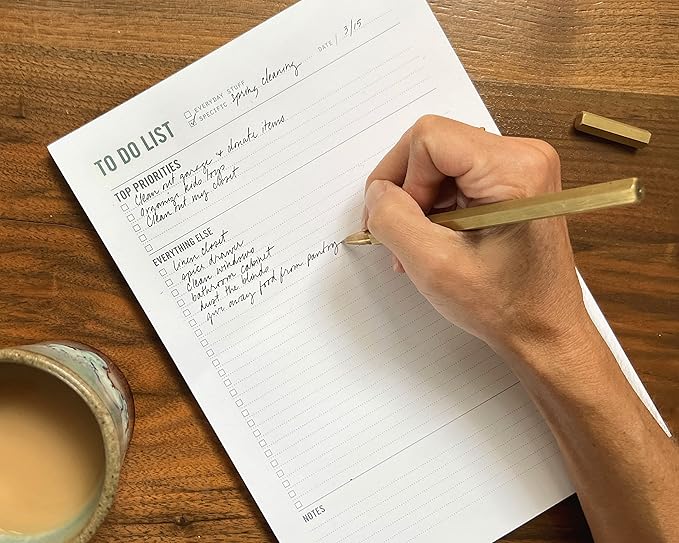 TO DO LIST
EVERYDAY STUFF
SPECIFIC spring cleaning
DATE 3/15
TOP PRIORITIES
Clean out garage + donate items
organize kids toys
Clean out my closet
EVERYTHING ELSE
linen closet
spice drawer
clean windows
bathroom cabinet
dust the blinds
give away food from pantry
NOTES